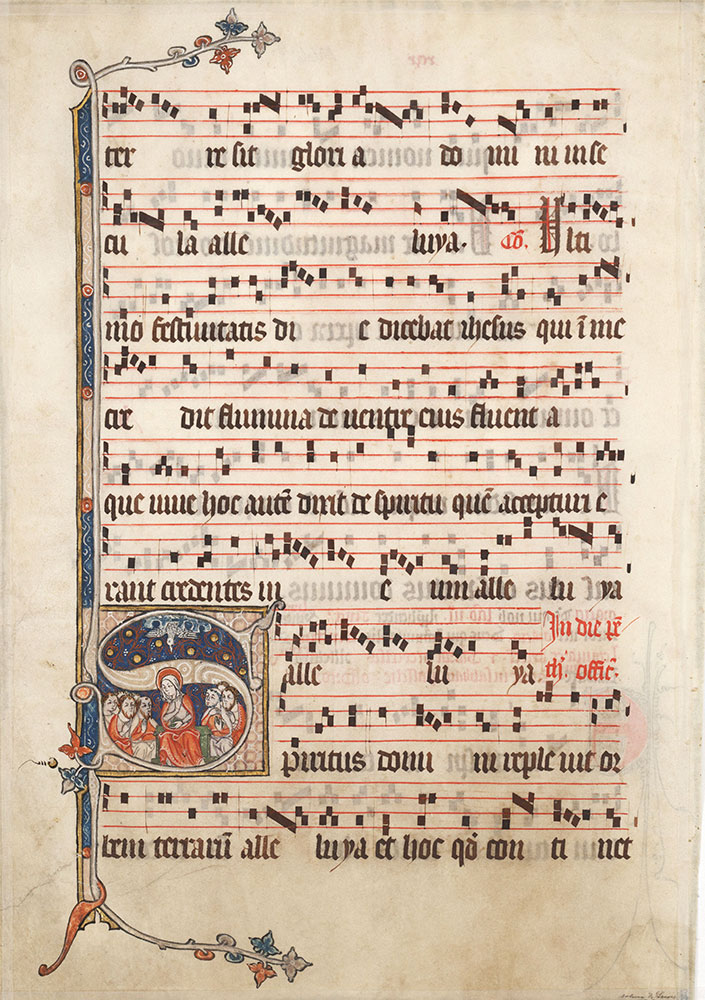 ter re sit glori a do mi ni in se
cu la alle luya. Cõ. Ulti
mo festivitatis di e dicebat ihesus qui ĩ me
cre dit flumina de ventre eius fluent a
que vive hoc autẽ dixit de spiritu quẽ accepturi e
rant credentes in e um alle lu ya
alle lu ya In die pẽ
th. offic.
Spiritus domi ni reple vit or
bem terrarũ alle lu ya et hoc qđ con ti net